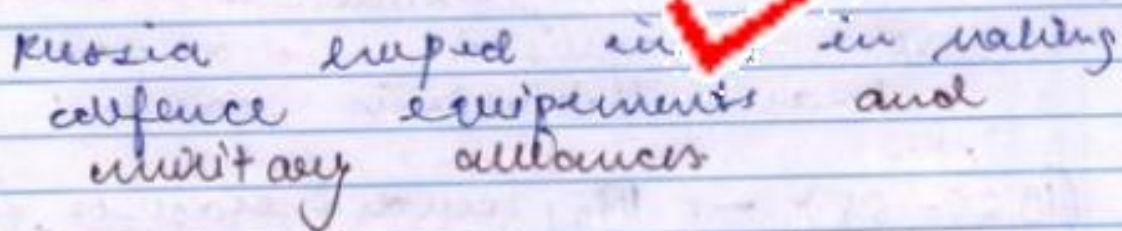 Russia helped in in making
defence equipements and
military alliances